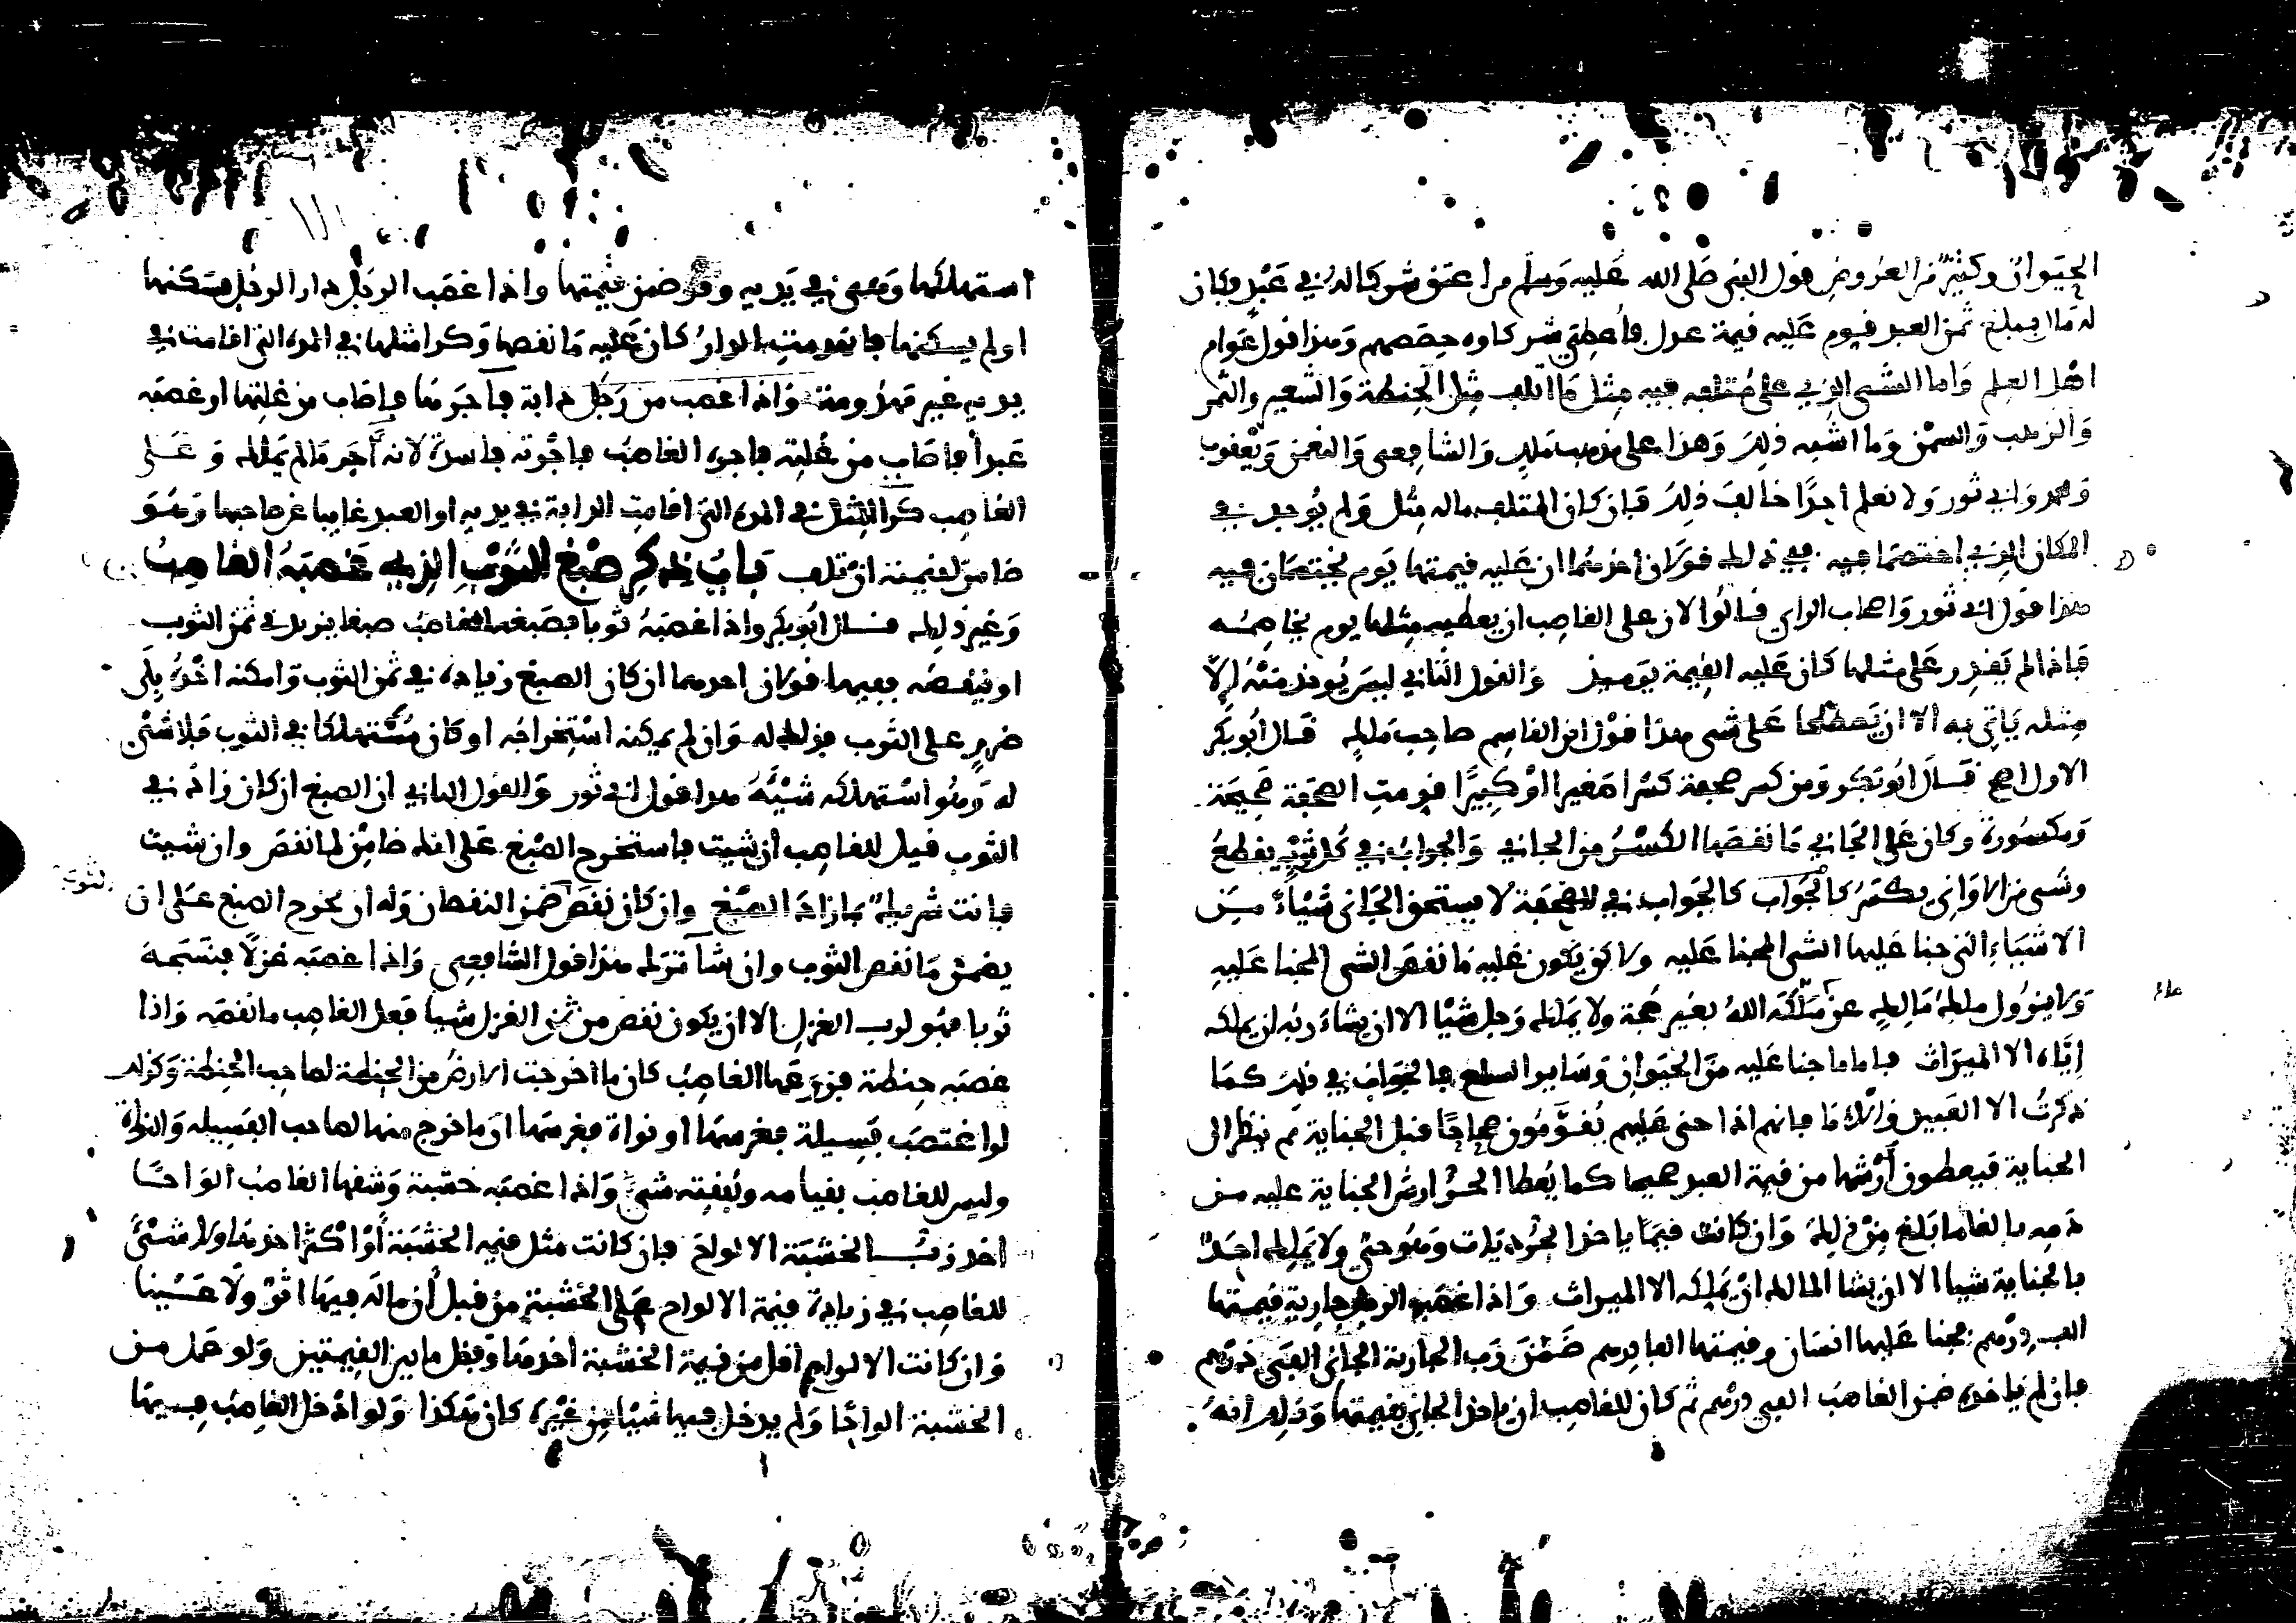 الحيوان وكثير من العروض قول النبي صلى الله عليه وسلم من اعتق شركا له في عبد وكان
له مال يبلغ ثمن العبد قوم عليه قيمة عدل فاعطي شركاوه حصصهم وهذا قول عوام
اهل العلم واما الشي الذي على متلفه فيه مثل ما اتلف مثل الحنطة والشعير والتمر
والزبيب والسمن وما اشبه ذلك وهذا على مذهب ملك والشافعي والنعمن ويعقوب
ومحمد وابي ثور ولا نعلم احدا خالف ذلك فان كان المتلف ماله مثل ولم يوجد في
المكان الذي اختصما فيه ففي ذلك قولان احدهما ان عليه قيمتها يوم يختصمان فيه
هذا قول ابي ثور واصحاب الراي قالوا لان على الغاصب ان يعطيه مثلها يوم يخاصمه
فاذا لم يقدر على مثلها كان عليه القيمة يوميذ والقول الثاني ليس يوخذ منه الا
مثله ياتي به الا ان يصطلحا على شي هذا قول ابن القاسم صاحب ملك قال ابو بكر
الاول اصح قال ابو بكر ومن كسر صحفة كسرا صغيرا او كبيرا قومت الصحفة صحيحة
ومكسورة وكان على الجاني ما نقصها الكسر من الجاني والجواب في كل شي يقطع
وشي من الاواني يكسر كالجواب في الصحفة لا يستحق الجاني شيا من
الاشياء التي جنا عليها الشي المجنا عليه ولاكن يكون عليه ما نقص الشي المجنا عليه
ولا يزول ملك مالك عن ملكه الله بغير حجة ولا يملك رجل شيا الا ان يشاء ربه ان يملكه
اياه الا الميراث فاما ما جنا عليه من الحيوان وساير السلع فالجواب في ذلك كما
ذكرت الا العبيد والاما فانهم اذا جني عليهم يقومون صحاحا قبل الجناية ثم ينظر الى
الجناية فيعطون ارشها من قيمة العبد صحيحا كما يعطا الحر ارش الجناية عليه من
دمه بالغا ما بلغ من ذلك وان كانت قيما ياخذ الحر ديات وهو حي ولا يملك احد
بالجناية شيا الا ان يشا المالك ان يملكه الا الميراث واذا غصب الرجل جارية قيمتها
الف درهم فجنا عليها انسان وقيمتها الفا درهم ضمن رب الجارية الجاني الفي درهم
فان لم ياخذه ضمن الغاصب الفي درهم ثم كان للغاصب ان ياخذ الجاني بقيمتها وذلك انه
استهلكها وهي في يديه وقد ضمن قيمتها واذا غصب الرجل دار الرجل فسكنها
او لم يسكنها فانهدمت الدار كان عليه ما نقصها وكرا مثلها في المدة التي اقامت في
يديه غير مهدومة واذا غصب من رجل دابة فاجرها فاصاب من غلتها او غصبه
عبدا فاصاب من غلته فاجره الغاصب فاجرته فاسدة لانه اجر ما لم يملك وعلى
الغاصب كرا المثل في المدة التي اقامت الدابة في يديه او العبد غايبا عن صاحبها وهو
ضامن لقيمته ان تلف باب ذكر صبغ الثوب الذي غصبه الغاصب
وغير ذلك قال ابو بكر واذا غصبه ثوبا فصبغه الغاصب صبغا يزيد في ثمن الثوب
او ينقصه ففيها قولان احدهما ان كان الصبغ زيادة في ثمن الثوب وامكنه اخذه بلا
ضرر على الثوب فذلك له وان لم يمكنه استخراجه او كان مستهلكا في الثوب فلا شي
له وهو استهلكه شيه هذا قول ابي ثور والقول الثاني ان الصبغ ان كان زاد في
الثوب قيل للغاصب ان شيت فاستخرج الصبغ على انك ضامن لما نقص وان شيت
فانت شريك بما زاد الصبغ وان كان نقص ضمن النقصان وله ان يخرج الصبغ على ان
الثوب
يضمن ما نقص الثوب وان شا تركه هذا قول الشافعي واذا غصبه غزلا فنسجه
ثوبا فهو لرب الغزل الا ان يكون نقص من ثمن الغزل شيا فعلى الغاصب ما نقصه واذا
غصبه حنطة فزرعها الغاصب كان ما اخرجت الارض من الحنطة لصاحب الحنطة وكذلك
لو اغتصب فسيلة فغرسها او نواة فغرسها ان ما خرج منها لصاحب الفسيلة والنواة
وليس للغاصب بقيامه ونفقته شي واذا غصبه خشبة وشقها الغاصب الواحا
اخذ رب الخشبة الالواح فان كانت مثل قيمة الخشبة او اكثر اخذها ولا شي
للغاصب في زيادة قيمة الالواح على الخشبة من قبل ان ماله فيها اثر ولا عينا
وان كانت الالواح اقل من قيمة الخشبة اخذها وفضل ما بين القيمتين ولو عمل من
الخشبة الواحا ولم يدخل فيها شيا من غيره كان هكذا ولو ادخل الغاصب فيها